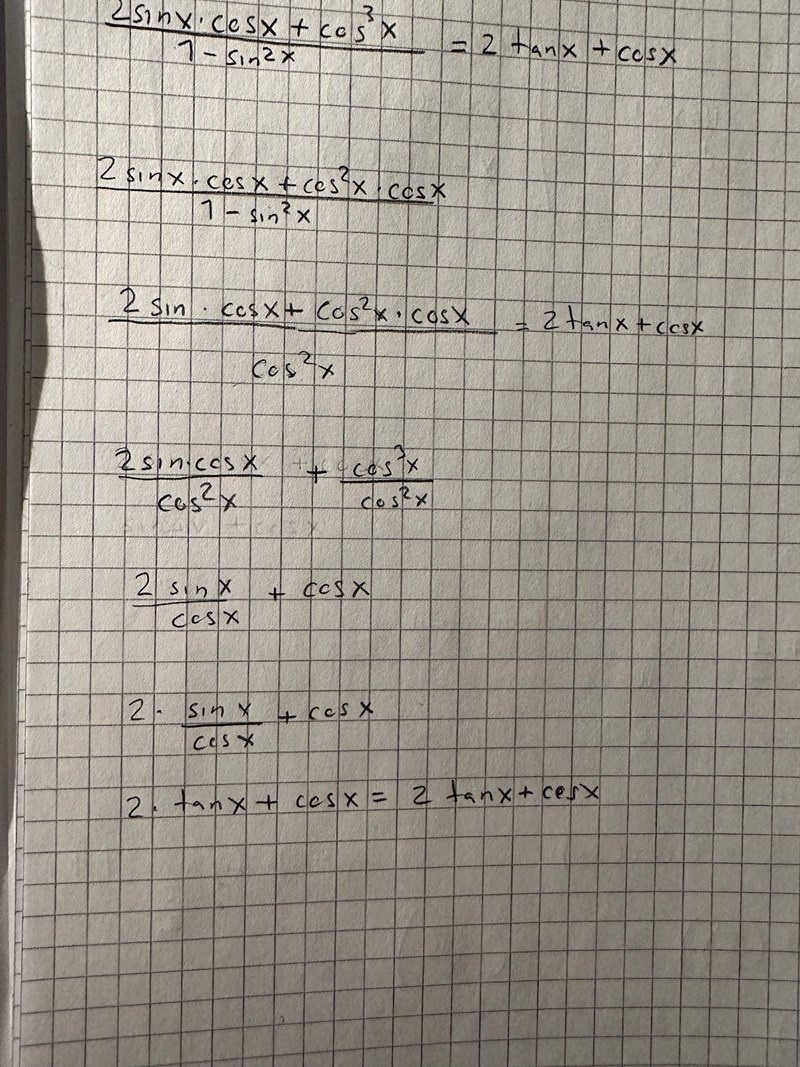 2 sinx · cosx + cos³x / 1 - sin²x = 2 tanx + cosx
2 sinx · cosx + cos²x · cosx / 1 - sin²x
2 sin · cosx + cos²x · cosx / cos²x = 2 tanx + cosx
2 sin · cosx / cos²x + cos³x / cos²x
2 sinx / cosx + cosx
2 · sinx / cosx + cosx
2 · tanx + cosx = 2 tanx + cosx